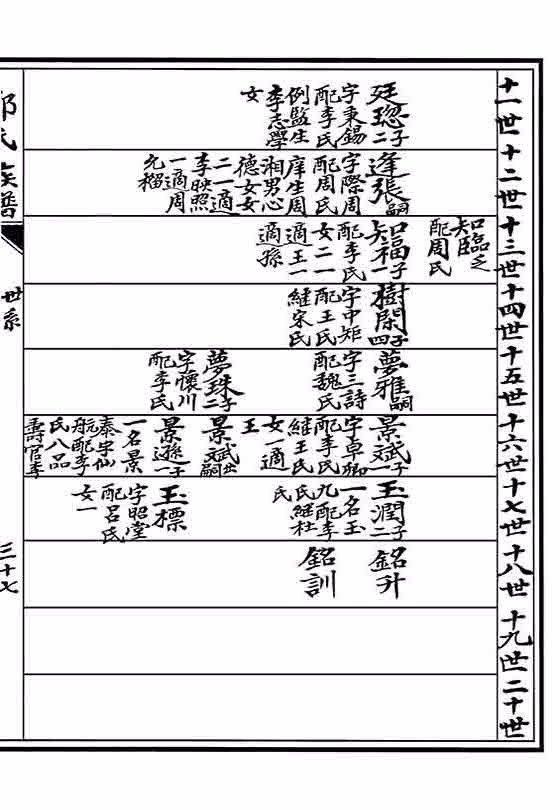 十一世
廷璁子二
字東錫
配李氏
例監生
李志學
女
十二世
逢張嗣
字際周
配周氏
庠生周
湘男心
德女女
二一適
李映照
一適周
允榴
十三世
知臨乏
配周氏
知福子一
配李氏
女二一
適王一
適孫
十四世
樹閑子四
字中矩
配王氏
維宋氏
十五世
夢雅嗣
字三詩
配魏氏
夢珠子二
字懷川
配李氏
十六世
景斌子一
字卓卿
配李氏
維王氏
女一適
王
景斌出嗣
景遜子一
一名景
泰字仙
航配李
氏八品
壽官李
十七世
玉潤子二
一名玉
九配李
氏維杜
氏
玉標
字昭堂
配呂氏
女一
十八世
銘升
銘訓
十九世
二十世
氏族譜
世系
三十七